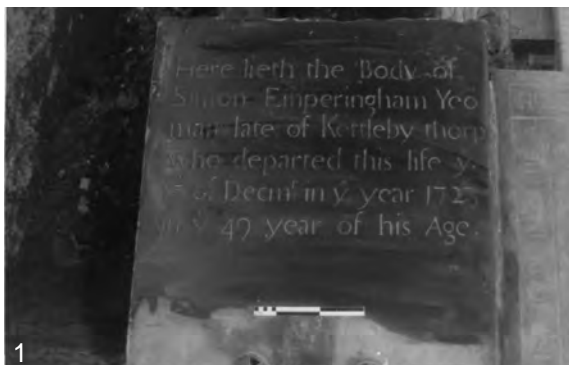 Here lieth the Body of
Simon Emperingham Yeo
man late of Kettleby thorp
who departed this life y
of Decmr in ye year 172
in ye 49 year of his Age.
1